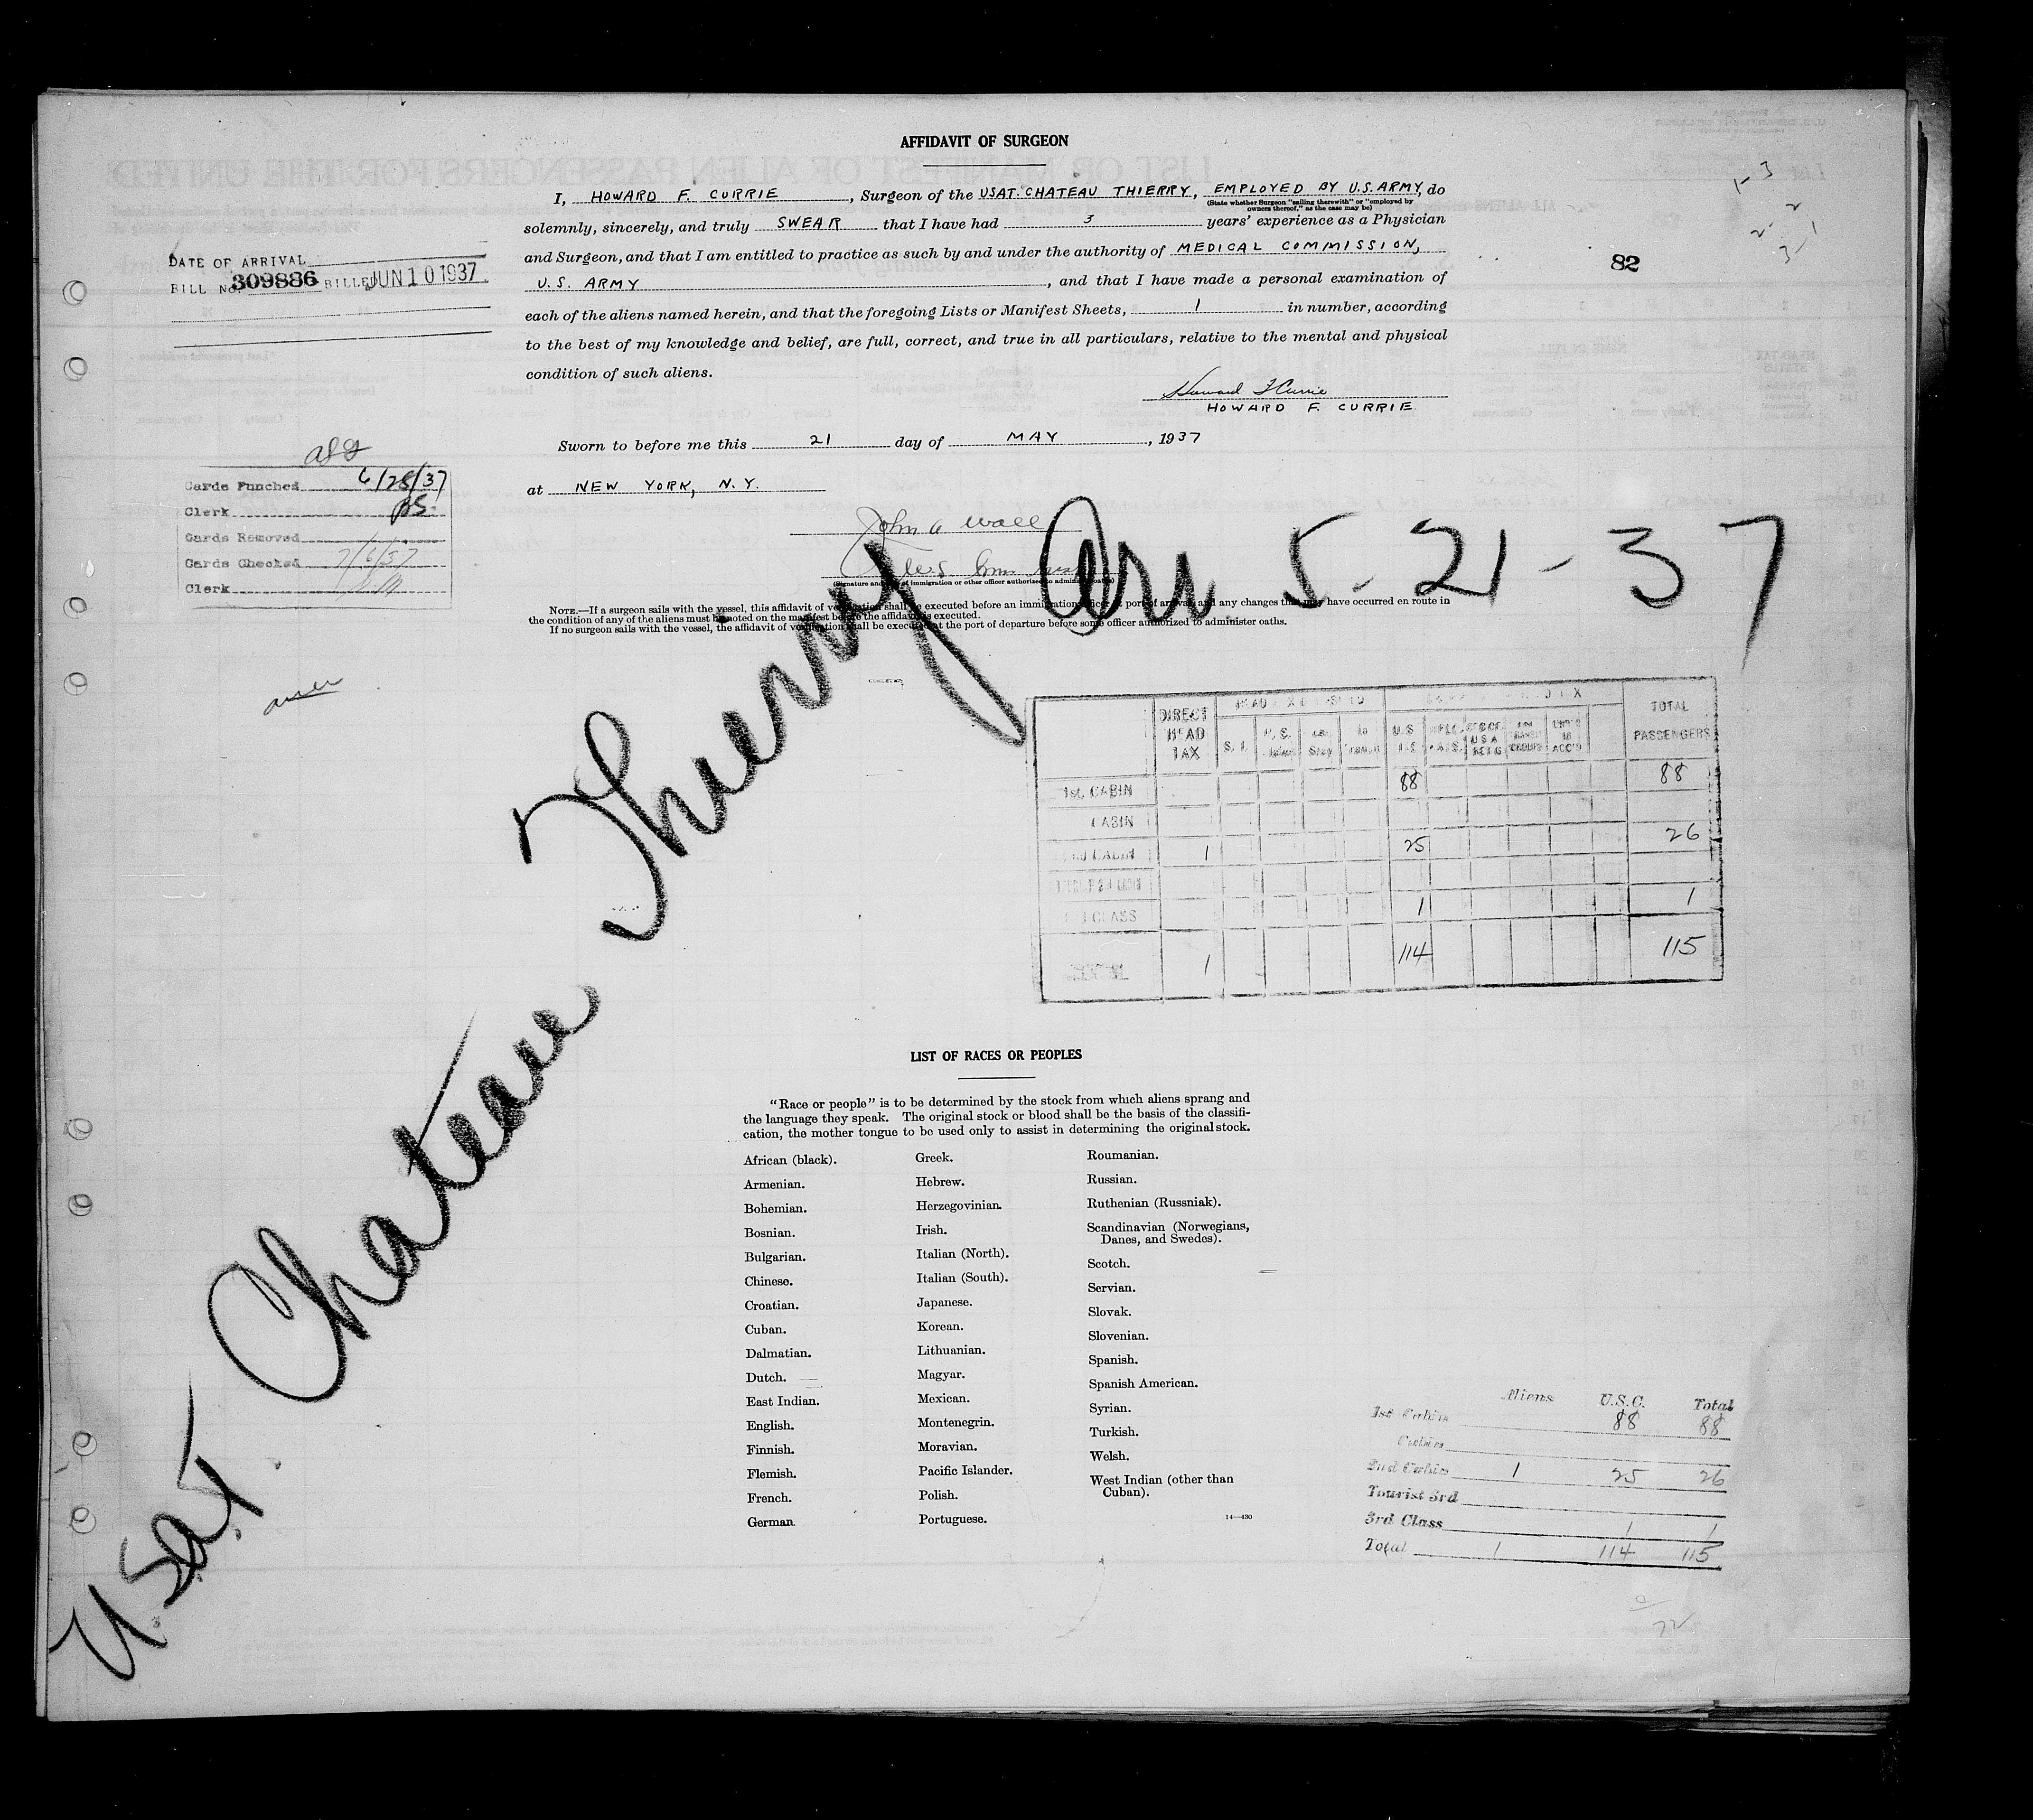 AFFIDAVIT OF SURGEON
I, HOWARD F. CURRIE, Surgeon of the USAT. CHATEAU THIERRY, EMPLOYED BY U.S. ARMY, do
(State whether Surgeon "sailing therewith" or "employed by
owners thereof," as the case may be)
solemnly, sincerely, and truly SWEAR that I have had 3 years' experience as a Physician
and Surgeon, and that I am entitled to practice as such by and under the authority of MEDICAL COMMISSION,
U.S. ARMY, and that I have made a personal examination of
each of the aliens named herein, and that the foregoing Lists or Manifest Sheets, 1 in number, according
to the best of my knowledge and belief, are full, correct, and true in all particulars, relative to the mental and physical
condition of such aliens.
Howard F Currie
HOWARD F. CURRIE
Sworn to before me this 21 day of MAY, 1937
at NEW YORK, N.Y.
John A Wall
(Signature and title of immigration or other officer authorized to administer oaths)
NOTE.—If a surgeon sails with the vessel, this affidavit of verification shall be executed before an immigration officer at port of arrival and any changes that may have occurred en route in
the condition of any of the aliens must be noted on the manifest before the affidavit is executed.
If no surgeon sails with the vessel, the affidavit of verification shall be executed at the port of departure before some officer authorized to administer oaths.
DATE OF ARRIVAL
BILL No. 309886 BILLED JUN 10 1937
82
1-3
Cards Punched 6/28/37
Clerk BS.
Cards Removed
Cards Checked 7/6/37
Clerk
U.S.A.T. Chateau Thierry Arr 5-21-37
DIRECT HEAD TAX S.I. U.S. TOTAL PASSENGERS
1st. CABIN 88 88
CABIN
2nd CABIN 1 25 26
3rd CLASS 1 1
TOTAL 1 114 115
LIST OF RACES OR PEOPLES
"Race or people" is to be determined by the stock from which aliens sprang and
the language they speak. The original stock or blood shall be the basis of the classifi-
cation, the mother tongue to be used only to assist in determining the original stock.
African (black).
Armenian.
Bohemian.
Bosnian.
Bulgarian.
Chinese.
Croatian.
Cuban.
Dalmatian.
Dutch.
East Indian.
English.
Finnish.
Flemish.
French.
German.
Greek.
Hebrew.
Herzegovinian.
Irish.
Italian (North).
Italian (South).
Japanese.
Korean.
Lithuanian.
Magyar.
Mexican.
Montenegrin.
Moravian.
Pacific Islander.
Polish.
Portuguese.
Roumanian.
Russian.
Ruthenian (Russniak).
Scandinavian (Norwegians,
Danes, and Swedes).
Scotch.
Servian.
Slovak.
Slovenian.
Spanish.
Spanish American.
Syrian.
Turkish.
Welsh.
West Indian (other than
Cuban).
14—430
Aliens U.S.C. Total
1st Cabin 88 88
Cabin
2nd Cabin 1 25 26
Tourist 3rd
3rd Class 1 1
Total 1 114 115